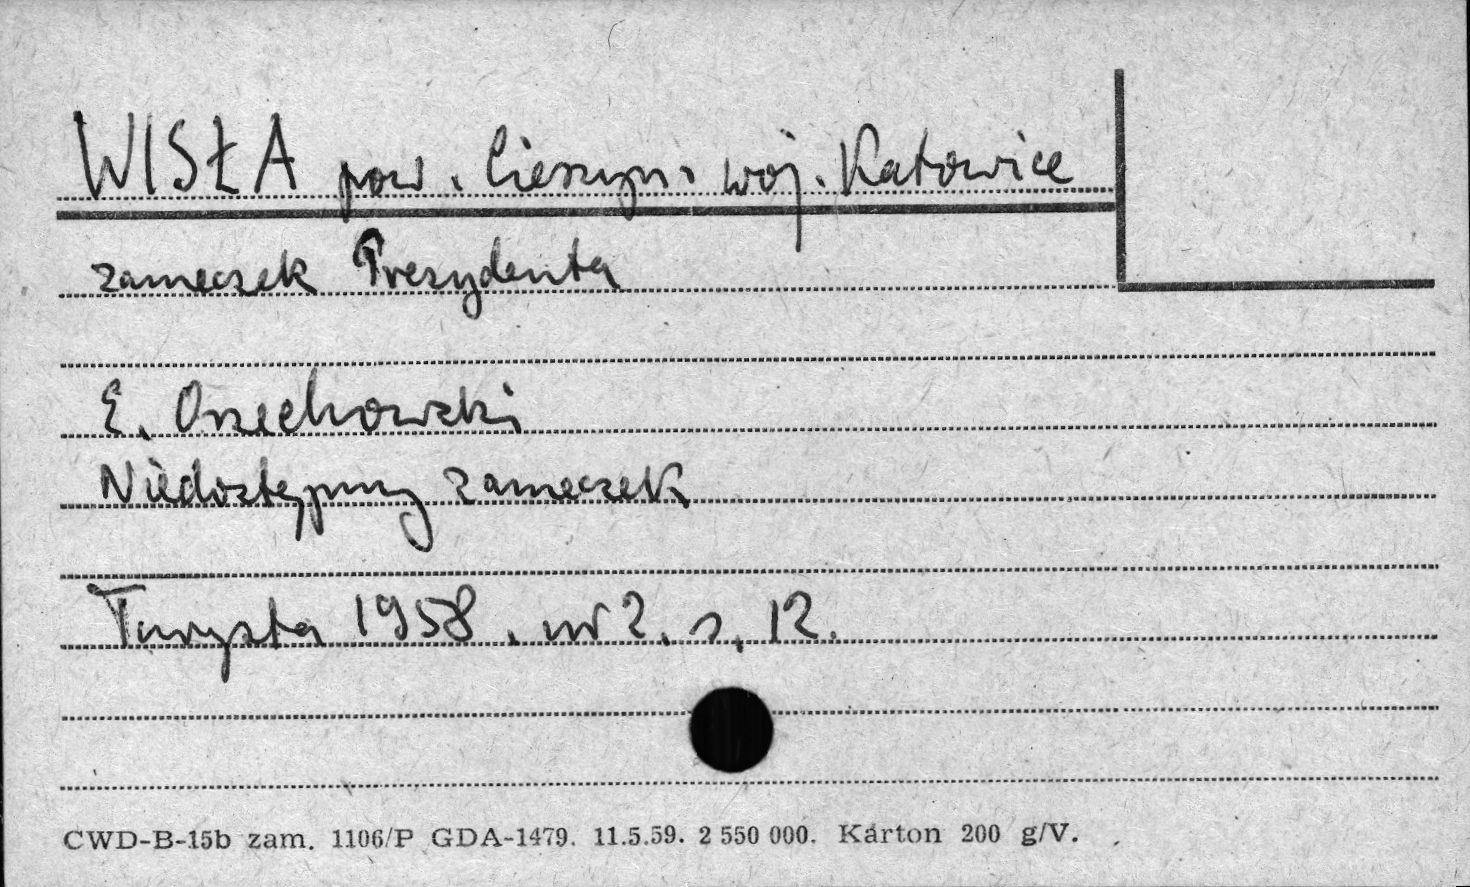 WISŁA pow. Cieszyn. woj. Katowice
zameczek Prezydenta
E. Orzechowski
Niedostępny zameczek
Turysta 1958. nr 2. s. 12.
CWD-B-15b zam. 1106/P GDA-1479. 11.5.59. 2 550 000. Karton 200 g/V.